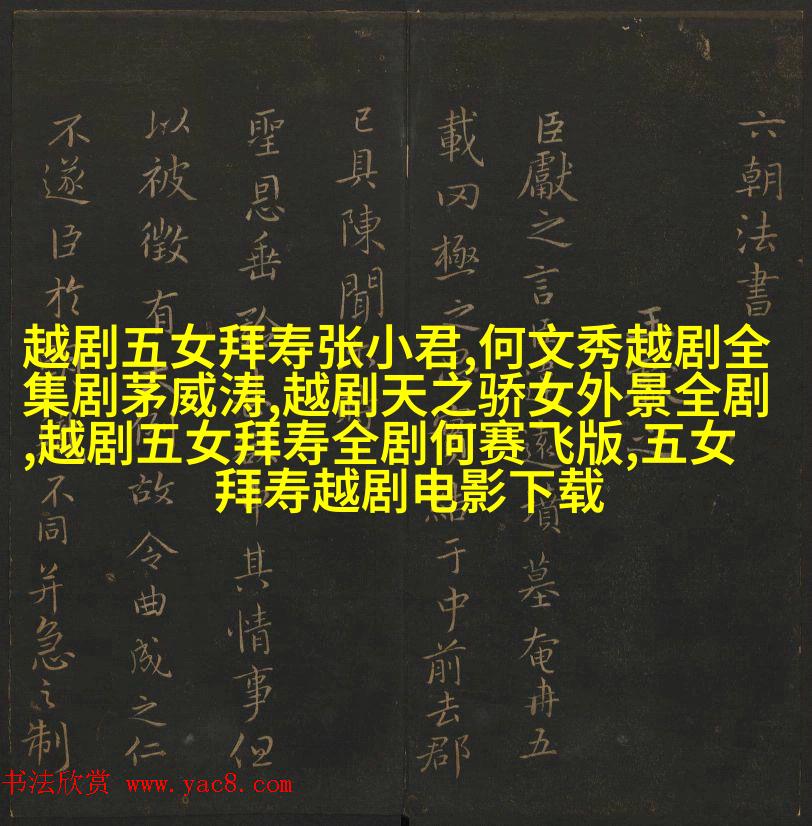 六朝法書
王
臣獻之言墳墓奄冉五
載罔極之于中前去郡
已具陳聞
聖恩垂其情事但
以被徵有故令曲成之仁
不遂臣於不同并急之制
越剧五女拜寿张小君,何文秀越剧全
集剧茅威涛,越剧天之骄女外景全剧
,越剧五女拜寿全剧何赛飞版,五女
拜寿越剧电影下载
书法欣赏 www.yac8.com